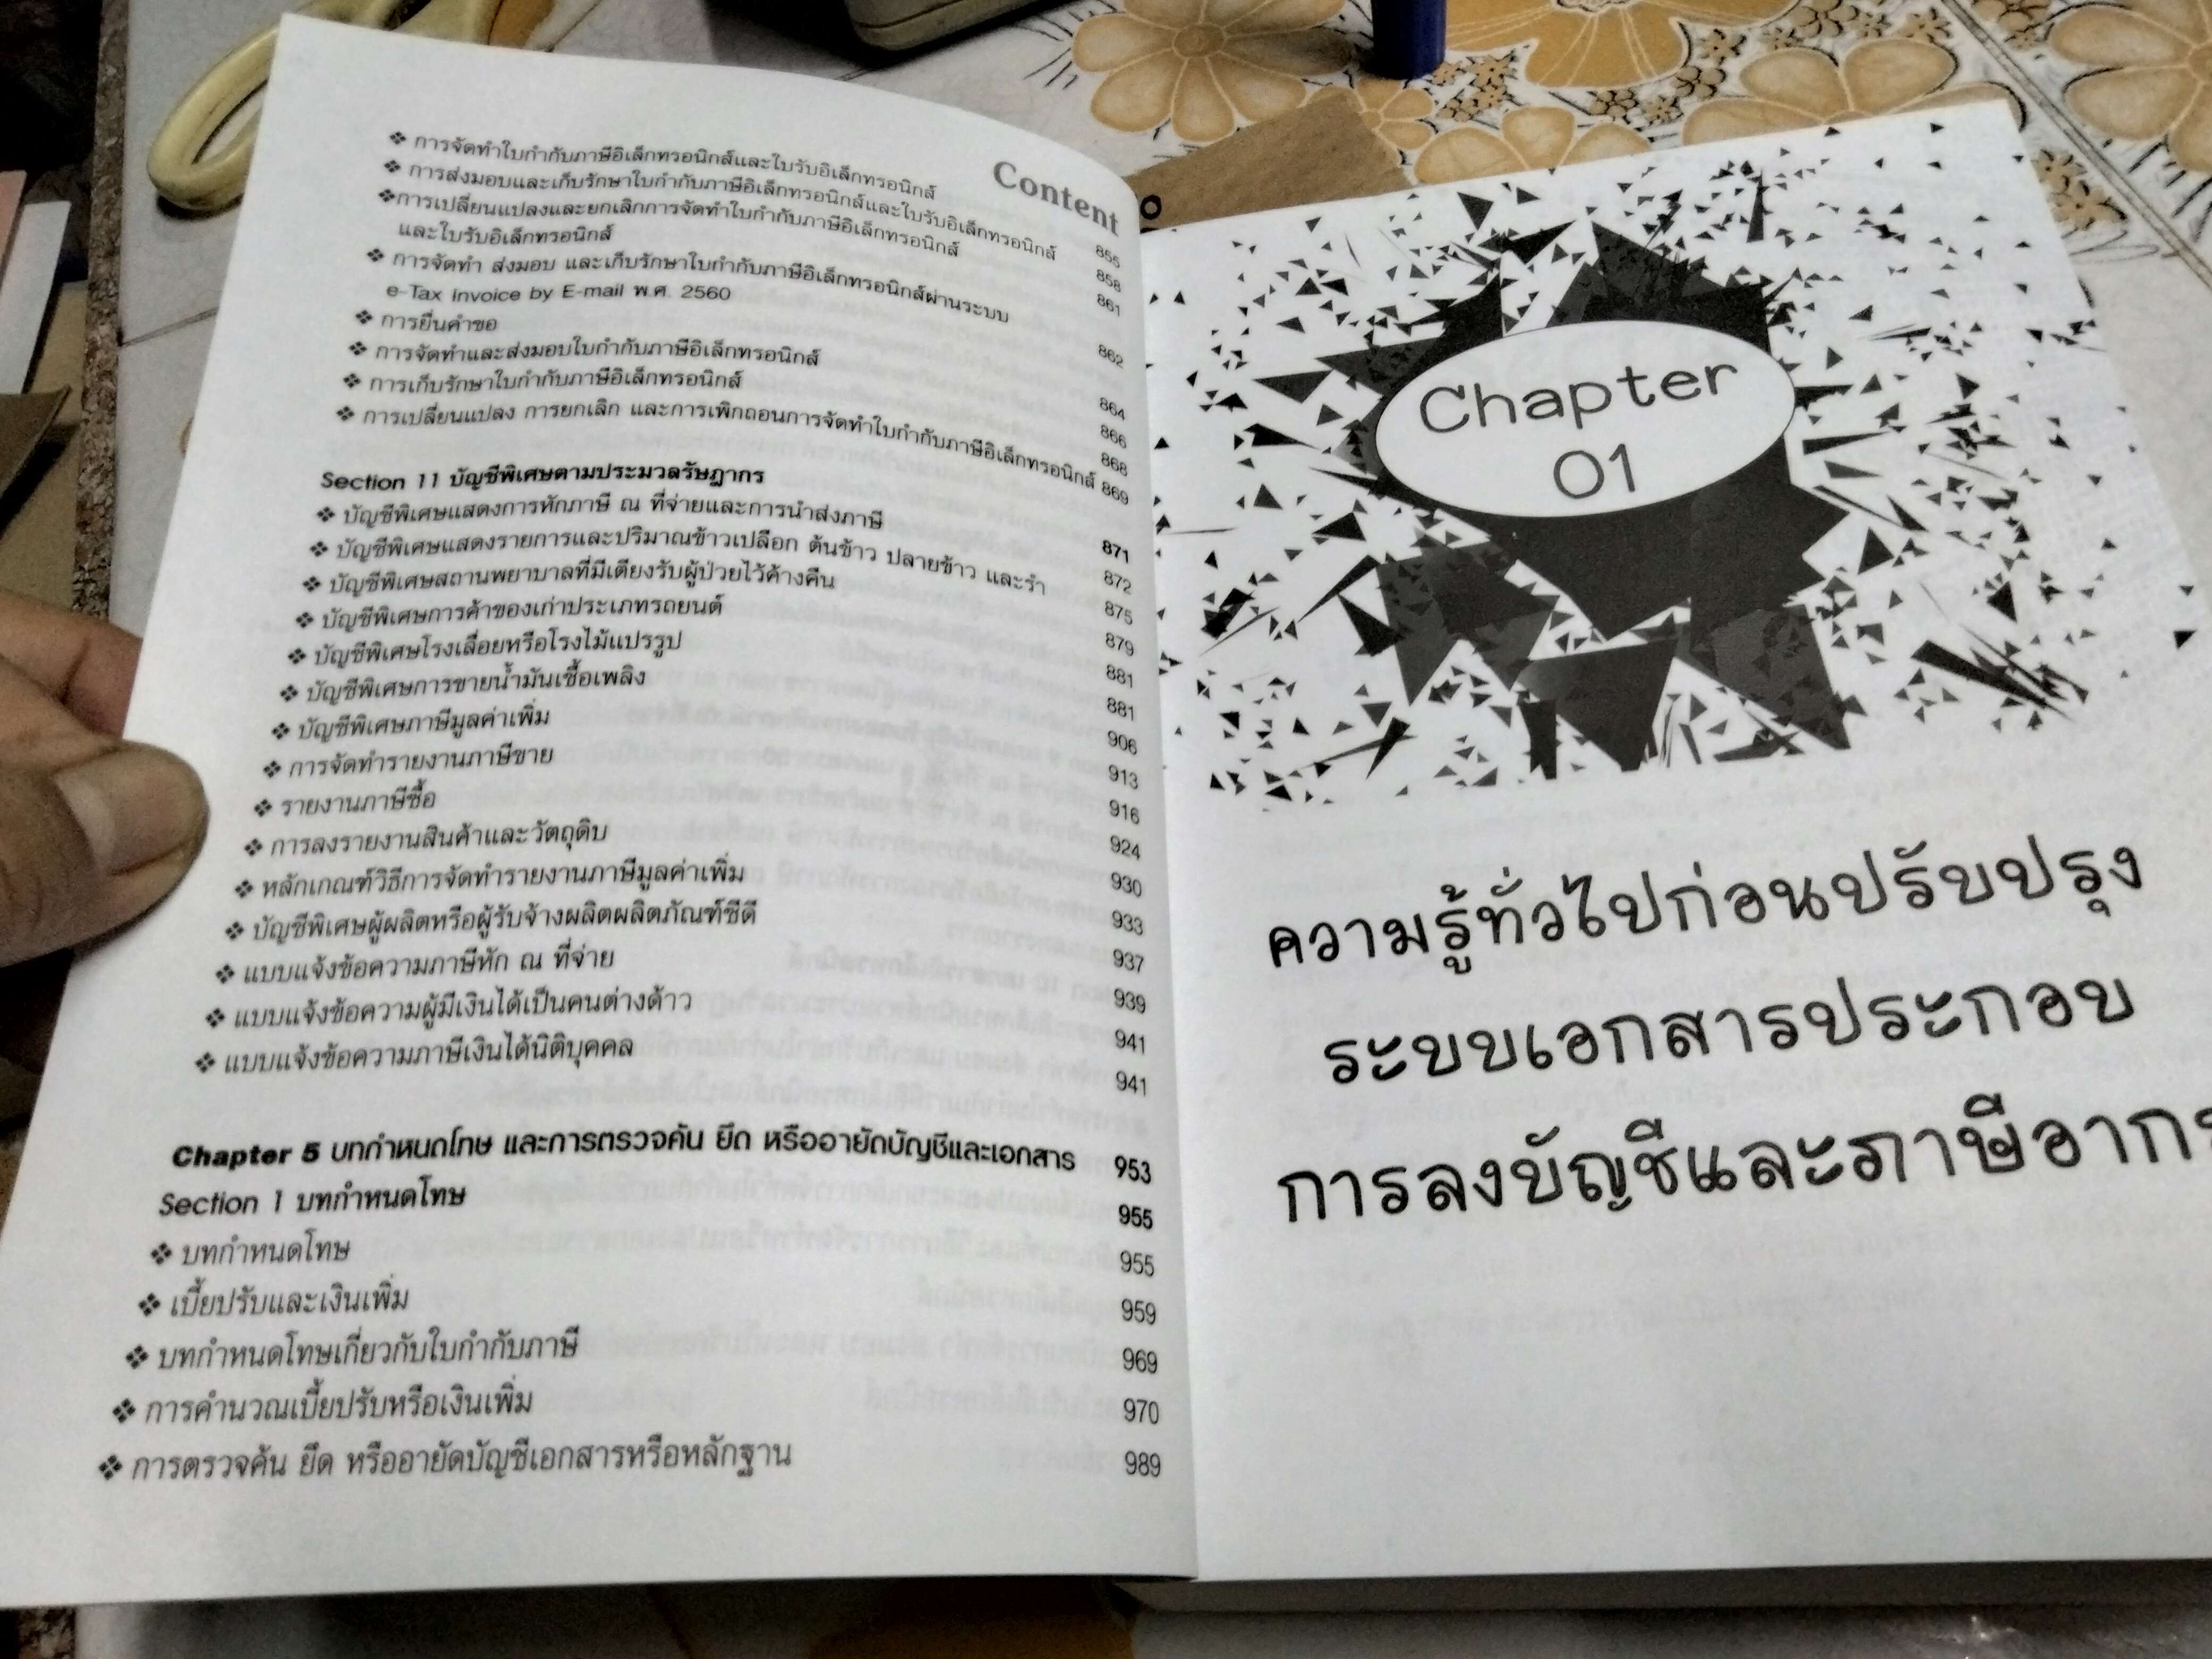 Content
❖ การจัดทำใบกำกับภาษีอิเล็กทรอนิกส์และใบรับอิเล็กทรอนิกส์ 855
❖ การส่งมอบและเก็บรักษาใบกำกับภาษีอิเล็กทรอนิกส์และใบรับอิเล็กทรอนิกส์ 858
❖การเปลี่ยนแปลงและยกเลิกการจัดทำใบกำกับภาษีอิเล็กทรอนิกส์
และใบรับอิเล็กทรอนิกส์ 861
❖ การจัดทำ ส่งมอบ และเก็บรักษาใบกำกับภาษีอิเล็กทรอนิกส์ผ่านระบบ
e-Tax Invoice by E-mail พ.ศ. 2560 862
❖ การยื่นคำขอ 864
❖ การจัดทำและส่งมอบใบกำกับภาษีอิเล็กทรอนิกส์ 866
❖ การเก็บรักษาใบกำกับภาษีอิเล็กทรอนิกส์ 868
❖ การเปลี่ยนแปลง การยกเลิก และการเพิกถอนการจัดทำใบกำกับภาษีอิเล็กทรอนิกส์ 869
Section 11 บัญชีพิเศษตามประมวลรัษฎากร 871
❖ บัญชีพิเศษแสดงการหักภาษี ณ ที่จ่ายและการนำส่งภาษี 872
❖ บัญชีพิเศษแสดงรายการและปริมาณข้าวเปลือก ต้นข้าว ปลายข้าว และรำ 875
❖ บัญชีพิเศษสถานพยาบาลที่มีเตียงรับผู้ป่วยไว้ค้างคืน 879
❖ บัญชีพิเศษการค้าของเก่าประเภทรถยนต์ 881
❖ บัญชีพิเศษโรงเลื่อยหรือโรงไม้แปรรูป 881
❖ บัญชีพิเศษการขายน้ำมันเชื้อเพลิง 906
❖ บัญชีพิเศษภาษีมูลค่าเพิ่ม 913
❖ การจัดทำรายงานภาษีขาย 916
❖ รายงานภาษีซื้อ 924
❖ การลงรายงานสินค้าและวัตถุดิบ 930
❖ หลักเกณฑ์วิธีการจัดทำรายงานภาษีมูลค่าเพิ่ม 933
❖ บัญชีพิเศษผู้ผลิตหรือผู้รับจ้างผลิตผลิตภัณฑ์ซีดี 937
❖ แบบแจ้งข้อความภาษีหัก ณ ที่จ่าย 939
❖ แบบแจ้งข้อความผู้มีเงินได้เป็นคนต่างด้าว 941
❖ แบบแจ้งข้อความภาษีเงินได้นิติบุคคล 941
Chapter 5 บทกำหนดโทษ และการตรวจค้น ยึด หรืออายัดบัญชีและเอกสาร 953
Section 1 บทกำหนดโทษ 955
❖ บทกำหนดโทษ 955
❖ เบี้ยปรับและเงินเพิ่ม 959
❖ บทกำหนดโทษเกี่ยวกับใบกำกับภาษี 969
❖ การคำนวณเบี้ยปรับหรือเงินเพิ่ม 970
❖ การตรวจค้น ยึด หรืออายัดบัญชีเอกสารหรือหลักฐาน 989
Chapter
01
ความรู้ทั่วไปก่อนปรับปรุง
ระบบเอกสารประกอบ
การลงบัญชีและภาษีอาก